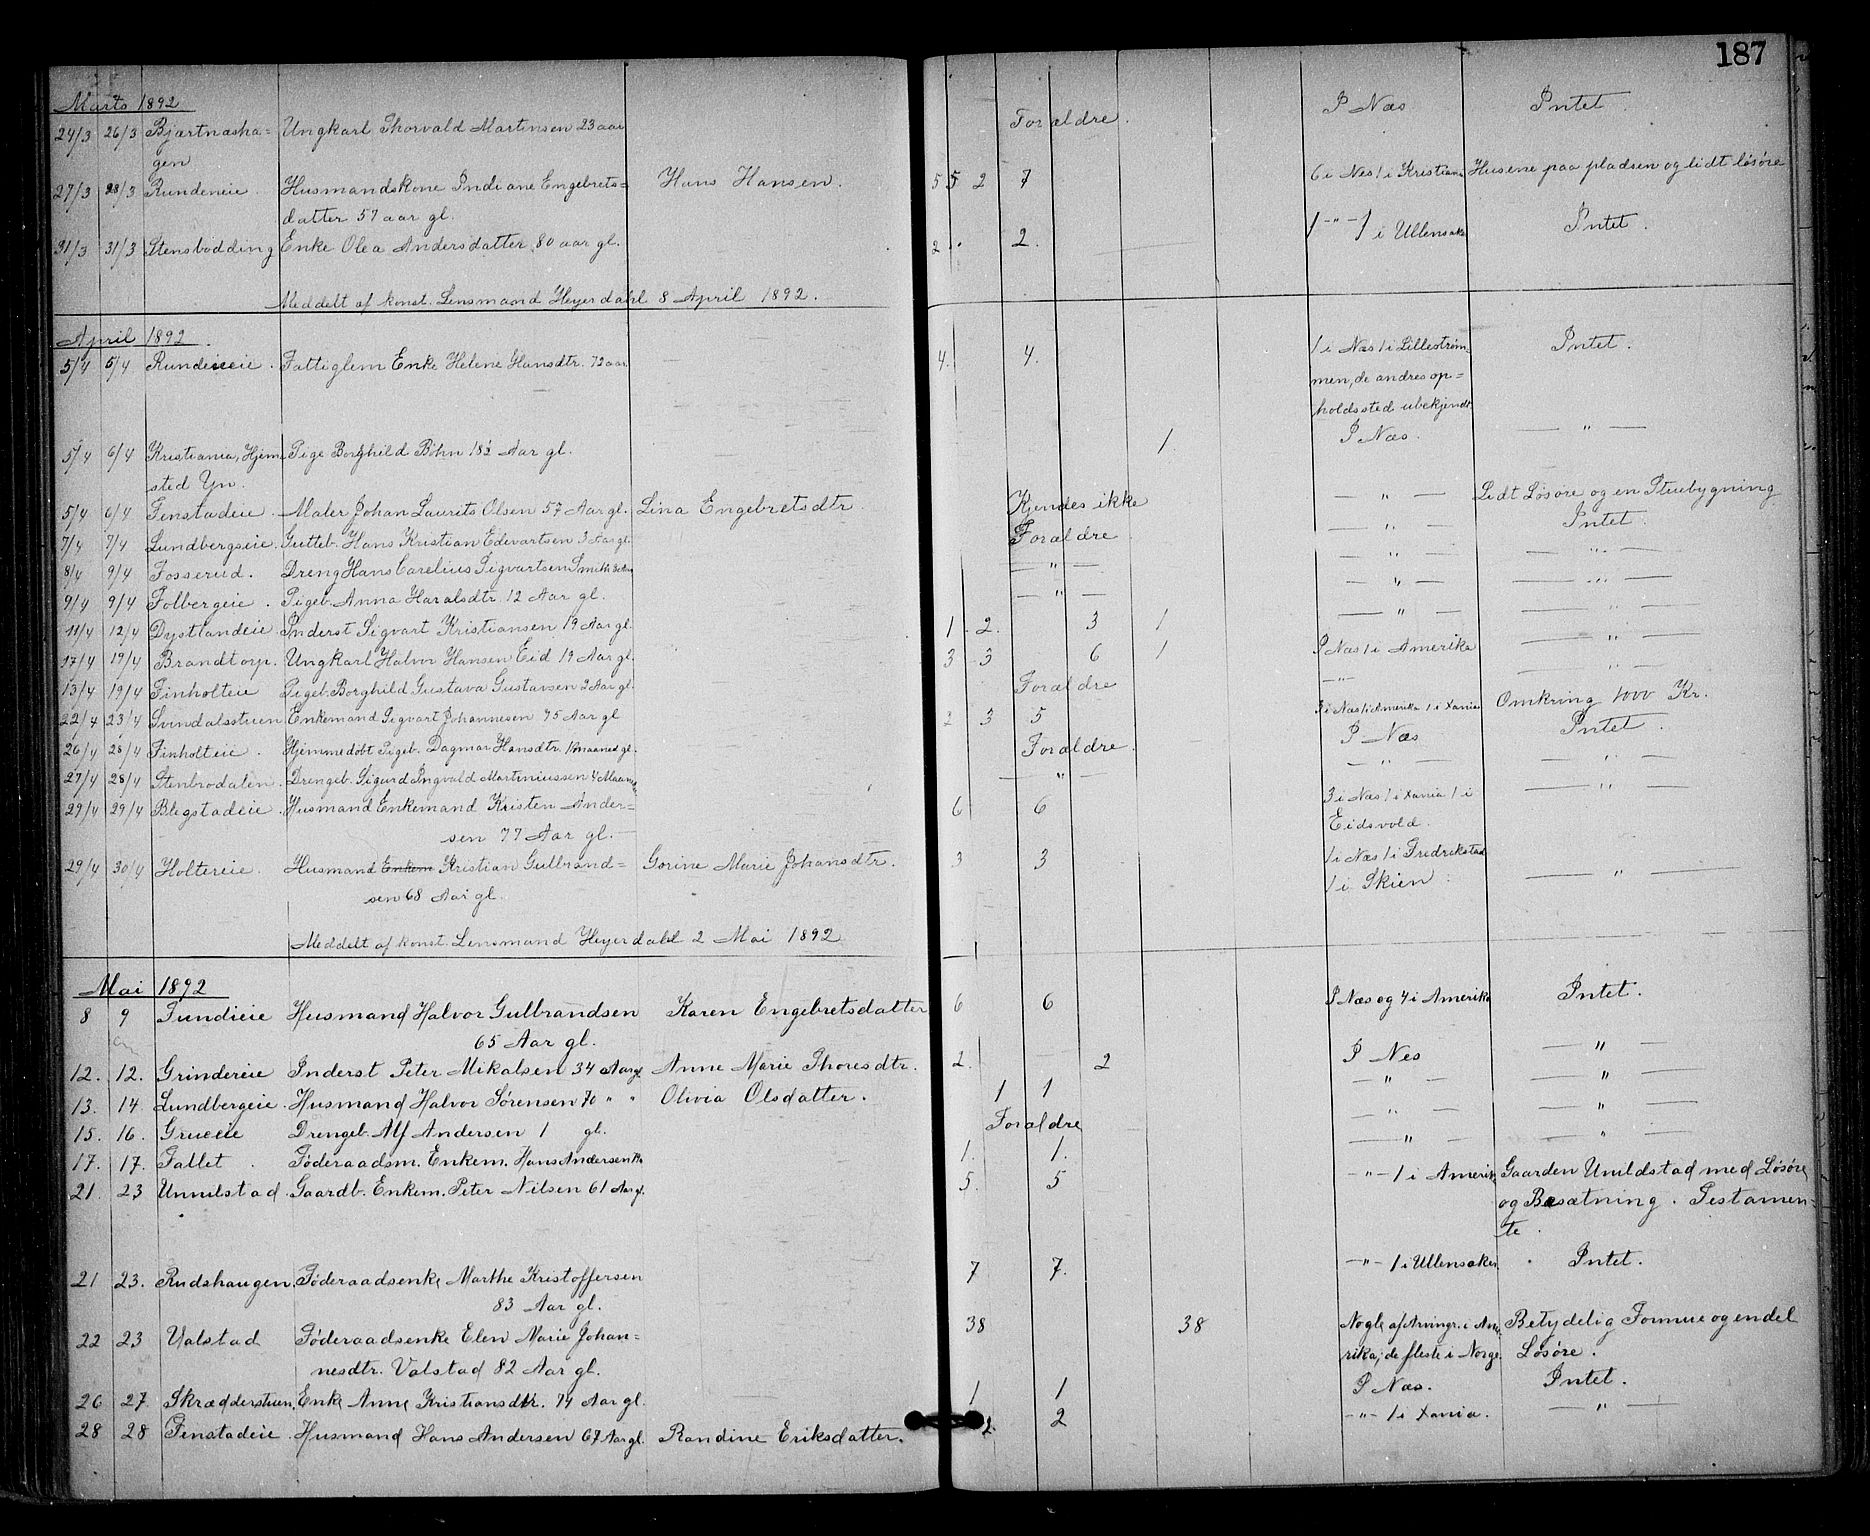 187
Marts 1892
24/3 26/3 Bjærtnæsha= Ungkarl Thorvald Martinsen 23 aar Forældre. I Næs Intet.
gen
27/3 28/3 Rundeneie Husmandskone Indiane Engebrets= Hans Hansen. 5 5 2 7 6 i Næs 1 i Kristiania Husene paa pladsen og lidt løsøre
datter 57 aar gl.
31/3 31/3 Stensbødding Enke Olea Andersdatter 80 aar gl. 2 2. 1 -"- 1 i Ullensaker Intet.
Meddelt af konst. Lensmand Heyerdahl 8 April 1892.
April 1892.
5/4 5/4 Rundeneie. Fattiglem Enke Helene Hansdtr. 72 aar 4. 4. 1 i Næs 1 i Lillestrøm= Intet.
men, de andres op=
holdssted ubekjendt
5/4 6/4 Kristiania, Hjem= Pige Borghild Bøhn 18½ Aar gl. 1. I Næs. — " —
sted Yn.
5/4 6/4 Fenstadeie. Maler Johan Laurits Olsen 57 Aar gl. Lina Engebretsdtr Kjendes ikke — " — Lidt Løsøre og en Stuebygning
7/4 7/4 Lundbergseie. Gutteb. Hans Kristian Edevartsen 3 Aar gl. Forældre — " — Intet.
8/4 9/4 Fosserud. Dreng Hans Carelius Sigvartsen Smith — " — — " — — " —
9/4 9/4 Folbergeie. Pigeb. Anna Haralsdtr. 12 Aar gl. — " — — " — — " —
11/4 12/4 Dystlandeie. Inderst Sigvart Kristiansen 19 Aar gl. 1. 2. 3 1 — " — — " —
17/4 19/4 Brandtorp. Ungkarl Halvor Hansen Eid 19 Aar gl. 3 3 6 1 I Næs 1 i Amerika — " —
13/4 19/4 Finholteie Pigeb. Borghild Gustava Gustavsen 2 Aar gl. Forældre — " — — " —
22/4 23/4 Svindalsstuen Enkemand Sigvart Johannesen 75 Aar gl 2 3 5 3 i Næs 1 i Amerika 1 i Xania Omkring 1000 Kr.
26/4 28/4 Finholteie. Hjemmedøbt Pigeb. Dagmar Hansdtr. 1 maaned gl. Forældre. I Næs Intet.
27/4 28/4 Stenbrodalen. Drengeb. Sigurd Ingvald Martiniussen 4 Maaneder — " — — " — — " —
29/4 29/4 Blegstadeie. Husmand Enkemand Kristen Ander= 6 6 3 i Næs 1 i Xania 1 i — " —
sen 77 Aar gl. Eidsvold.
29/4 30/4 Holtereie. Husmand Enkem Kristian Gulbrand= Gorine Marie Johansdtr. 3 3 1 i Næs 1 i Fredrikstad
sen 68 Aar gl. 1 i Skien. — " —
Meddelt af konst. Lensmand Heyerdahl 2 Mai 1892
Mai 1892
8 9 Tundieie Husmand Halvor Gulbrandsen Karen Engebretsdatter 6 6 I Næs og 4 i Amerika Intet.
65 Aar gl.
12. 12. Grindereie Inderst Peter Mikalsen 34 Aar gl Anne Marie Thoresdtr. 2. 2 I Nes — " —
13. 14 Lundbergeie. Husmand Halvor Sørensen 70 " " Olivia Olsdatter. 1 1 — " — — " —
15. 16. Grueeie Drengeb. Alf Andersen 1 gl. Forældre — " — — " —
17. 17. Fallet. Føderaadsm. Enkem. Hans Andersen 1. 1. — " — — " —
21. 23 Unnilstad. Gaardb. Enkem. Peter Nilsen 61 Aar gl. 5. 5 -"- 1 i Amerika Gaarden Unildstad med Løsøre
og Besætning. Testamen=
te.
21 23. Rudshaugen Føderaadsenke Marthe Kristoffersen 7 7. -"- 1 i Ullensaker. Intet.
83 Aar gl.
22 23 Valstad Føderaadsenke Elen Marie Johan= 38 38 Nogle af Arvingr. i Ame= Betydelig Formue og endel
nesdtr. Valstad 82 Aar gl. rika; de fleste i Norge. Løsøre.
26 27. Skrædderstuen. Enke Anne Kristiansdtr. 74 Aar gl. 1 1 I Næs. Intet.
28 28 Fenstadeie. Husmand Hans Andersen 67 Aar gl. Randine Eriksdatter. 2. 2 -"- 1 i Xania. — " —